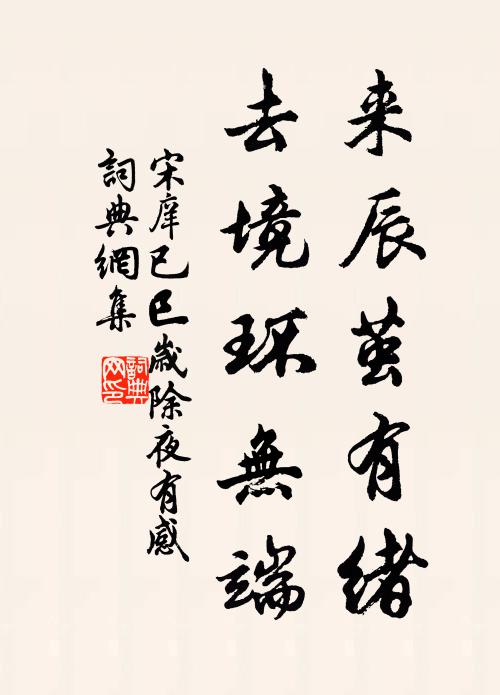 来辰茧有緒
去境环無端
宋庠己巳歲除夜有感
詞典網集
詞典
网印